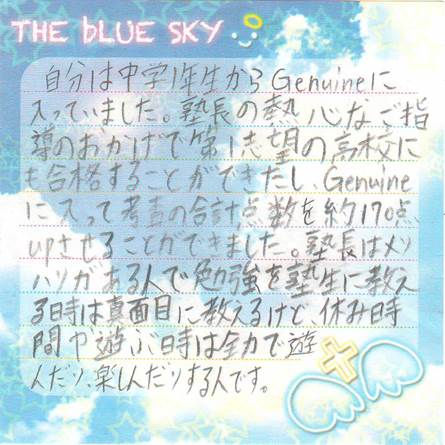 THE bLUE SKY
自分は中学1年生からGenuineに
入っていました。塾長の熱心なご指
導のおかげで第1志望の高校に
も合格することができたし、Genuine
に入って考査の合計点数を約170点
upさせることができました。塾長はメリ
ハリがある人で勉強を塾生に教え
る時は真面目に教えるけど、休み時
間や遊ぶ時は全力で遊
んだり、楽しんだりする人です。